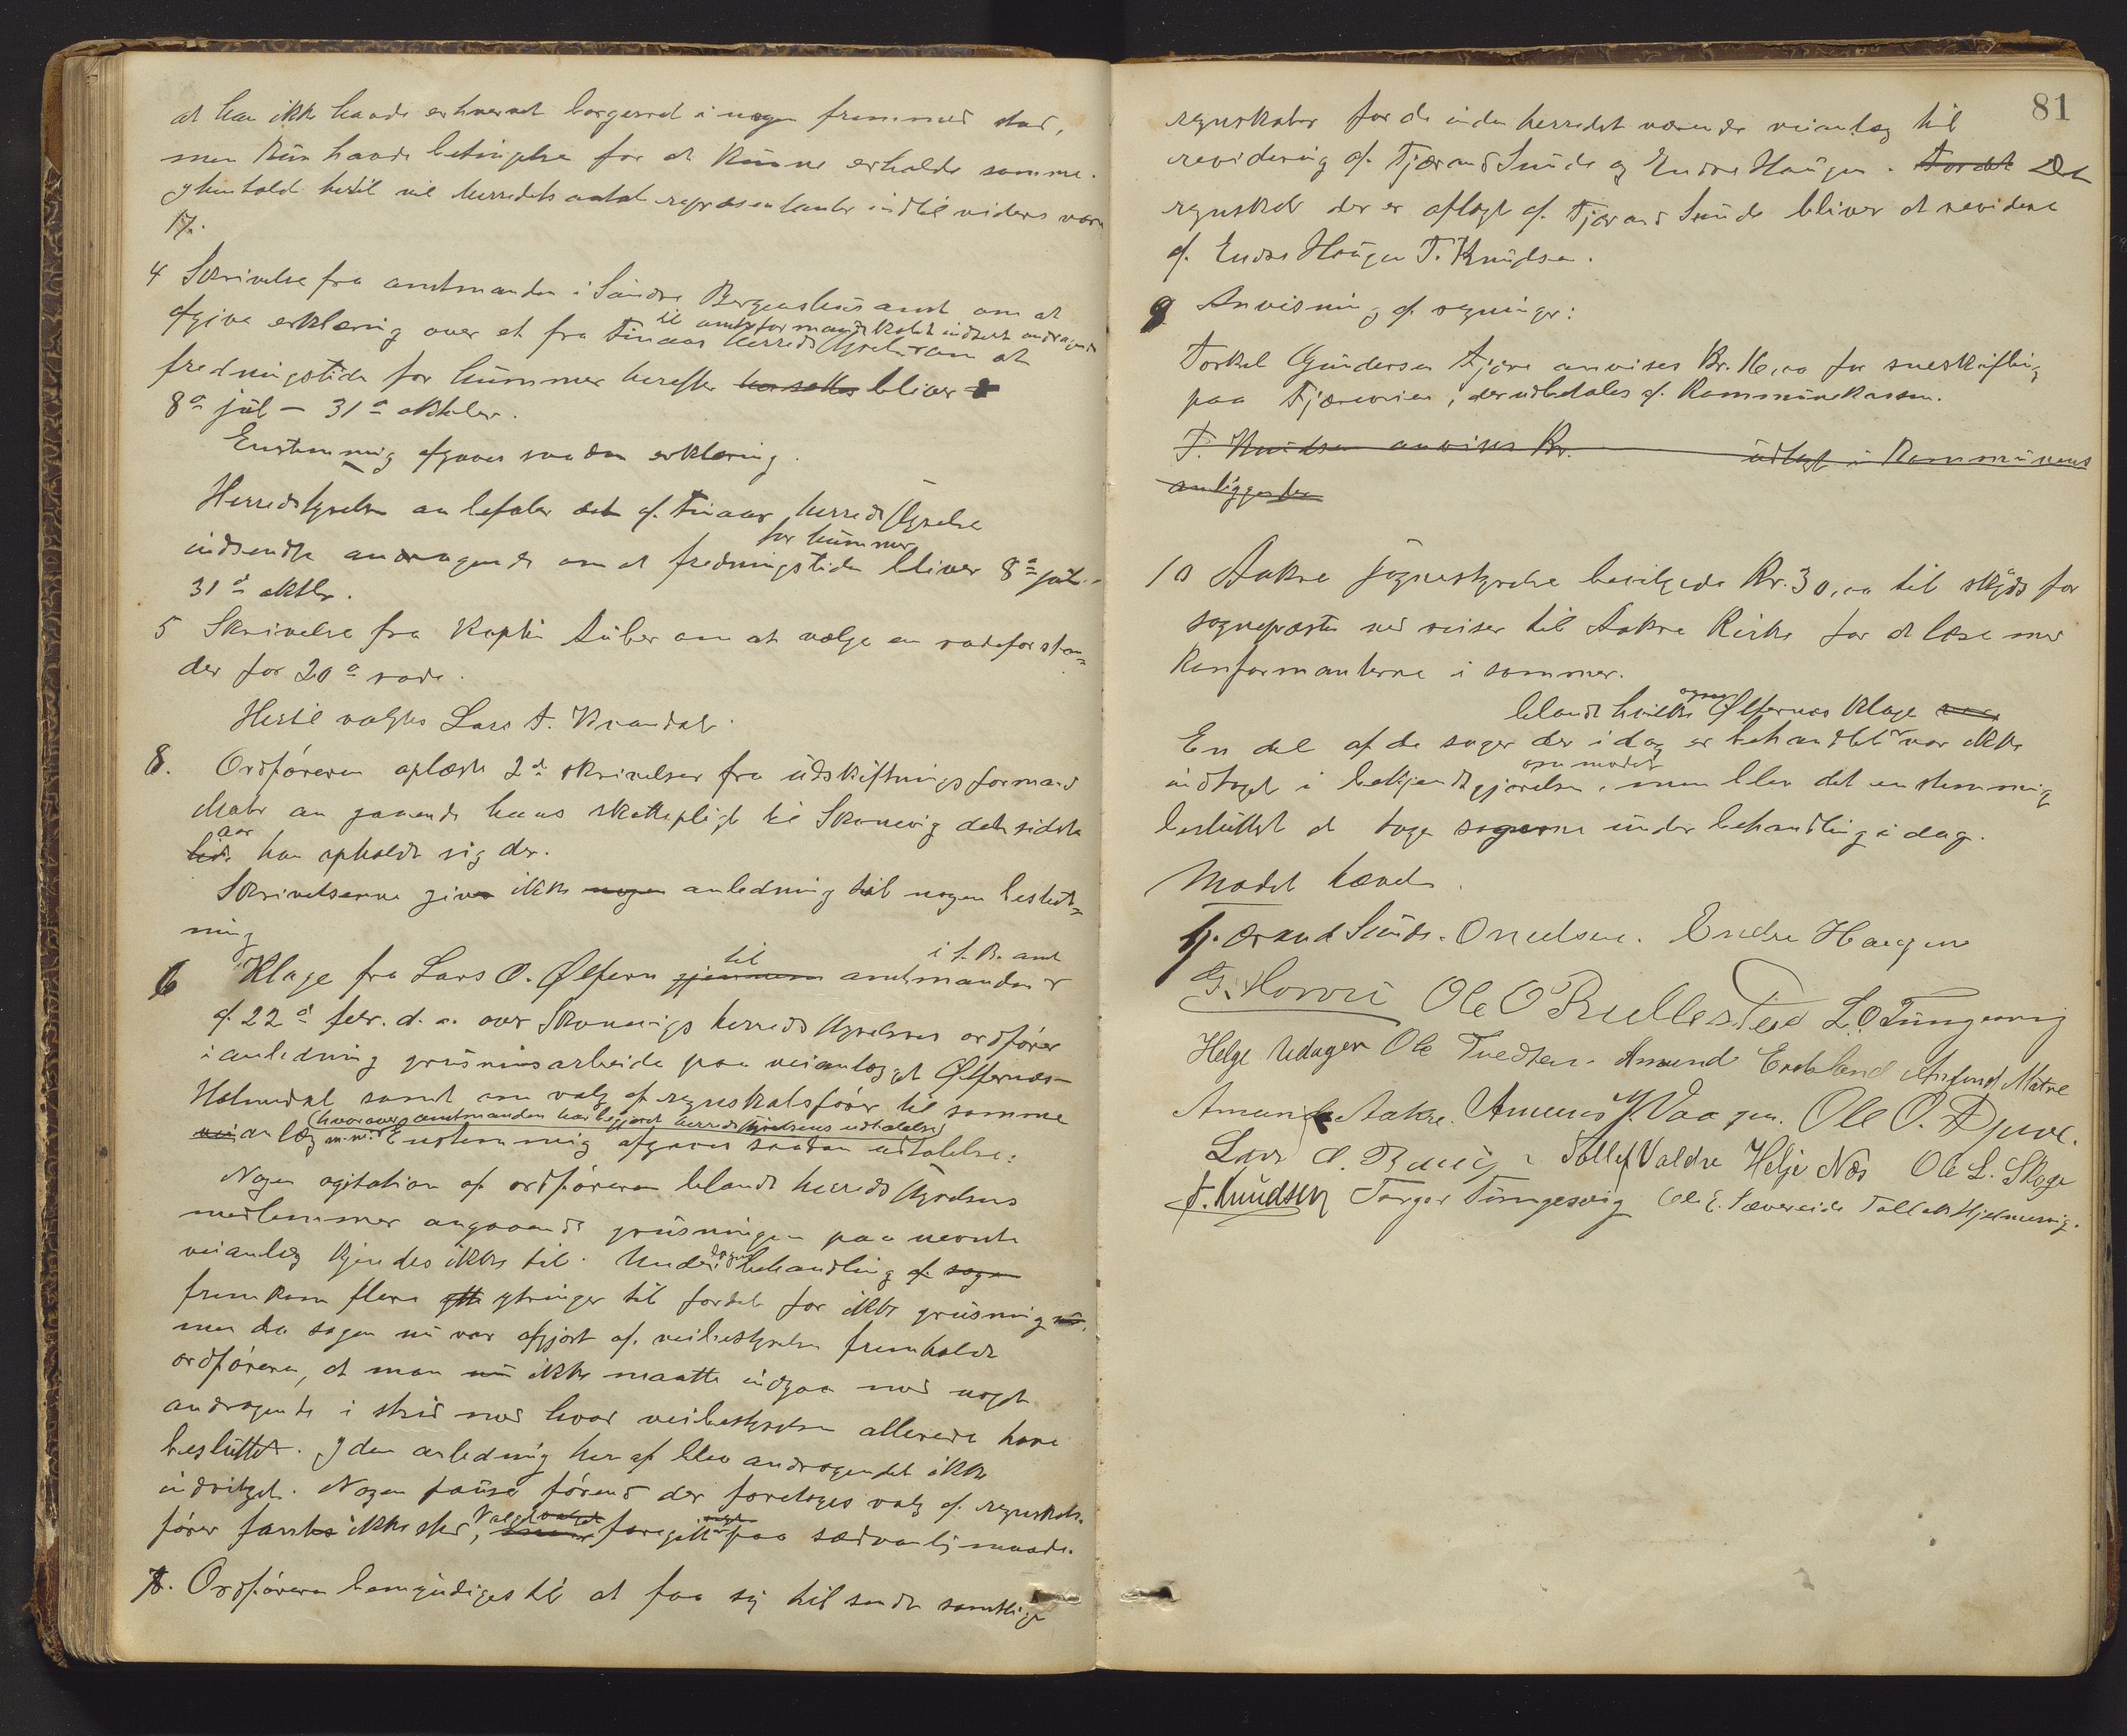 at han ikke havde erhvervet borgerret i nogen fremmed stad,
men kun havde betingelse for at kunne erholde samme.
I henhold hertil vil herredets antal repræsentanter indtil videre være
17.
4 Skrivelse fra amtmanden i Søndre Bergenhus amt om at
afgive erklæring over et fra Finaas herredsstyrelse til amtsformandskabet indsent andragende om at
fredningstiden for hummer herefter bliver
8de juli - 31te oktober.
Enstemmig afgaves saadan erklæring.
Herredstyrelsen anbefaler det af Finaas herredsstyrelse
indsendte andragende om at fredningstiden for hummer bliver 8de juli -
31te oktbr.
5 Skrivelse fra Kaptein Tuber om at vælge en rodeforstan=
der for 20de rode.
Hertil valgtes Lars T. Kvandal.
8. Ordføreren oplæste 2de skrivelser fra udskiftningsformand
angaaende hans skattepligt til Skonevig det sidste
aar han opholdt sig der.
Skrivelserne giver ikke nogen anledning til nogen beslut=
ning
6 Klage fra Lars O. Ølfern gjennem til amtmanden i S. B. amt
af 22de febr. d. a. over Skonevigs herredsstyrelses ordfører
i anledning grusningsarbeide paa veianlægget Ølfernes-
Holmedal samt om valg af regnskabsfører til samme
vei anlæg m.m. (hvorover amtmanden har begjært herredsstyrelsens udtalelse) Enstemmig afgaves saadan udtalelse:
Nogen agitation af ordføreren blandt herredsstyrelsens
medlemmer angaaende grusningen paa nævnte
veianlæg kjendes ikke til. Under sagens behandling af sagen
fremkom flere ytringer til fordel for ikke grusning nu,
men da sagen nu var afgjort af veibestyrelsen fremholdt
ordføreren, at man nu ikke maatte indgaa med noget
andragende i strid med hvad veibestyrelsen allerede have
besluttet. I den anledning heraf blev andragendet ikke
indvilget. Nogen pause førend der foretoges valg af regnskabs-
fører fandtes ikke sted, Valget foregik paa sædvanlig maade.
7. Ordføreren bemyndiges til at faa sig tilsendt samtlige
81
regnskaber for de inden herredet værende veianlæg til
revidering af Tjærand Sunde og Endre Haugen. For det Det
regnskab der er aflagt af Tjærand Sunde bliver at revidere
af Endre Haugen T. Knudsen.
9 Anvisning af regninger:
Torkel Gundersen Fjære anvises Kr. 16,00 for sneskuffling
paa Fjæreveien, der udbetales af Kommunekassen.
T. Knudsen anvises Kr. udlagt i Kommunens
anliggender
10 Aakre sognestyrelse bevilgede Kr. 30,00 til skyds for
sognepresten ved reiser til Aakre Kirke for at læse med
Konfirmanterne i sommer.
En del af de sager der i dag er behandlet blandt hvilke Ølfernes klage var ikke
indtaget i bekjendtgjørelsen om mødet, men blev det enstemmig
besluttet at tage sagerne under behandling i dag.
Mødet hævet.
Tjærand Sunde. O Nielsen. Endre Haugen
G. Horvei Ole O Bullestad L. O Tungesvig
Helge Udagen Ole Tvedten. Amund Eikeland Anfind Matre
Amund Aakre. Amund J. Vaagen. Ole O. Djuve.
Lars Tollef Valdre Helje Nes Ole L. Skoge
T. Knudsen Torger Tungesvig Ole E. Sævereide Tollak Hjelmevig.